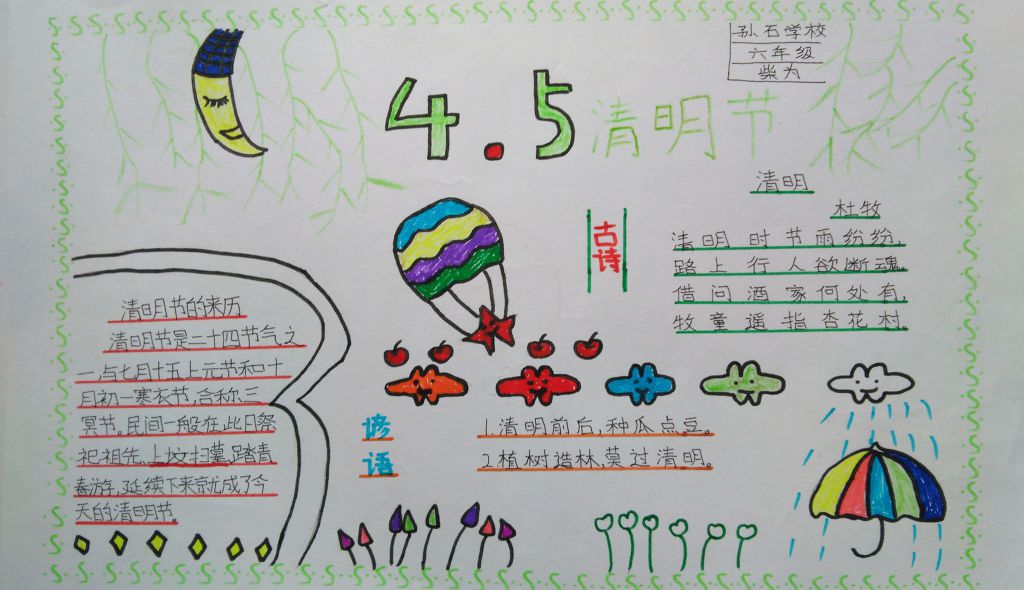 孙石学校
六年级
柴为
4.5清明节
清明
杜牧
清明时节雨纷纷,
路上行人欲断魂。
借问酒家何处有,
牧童遥指杏花村。
古诗
清明节的来历
清明节是二十四节气之
一,与七月十五上元节和十
月初一寒衣节,合称三
冥节。民间一般在此日祭
祀祖先,上坟扫墓,踏青
春游,延续下来就成了今
天的清明节。
谚语
1.清明前后,种瓜点豆。
2.植树造林,莫过清明。